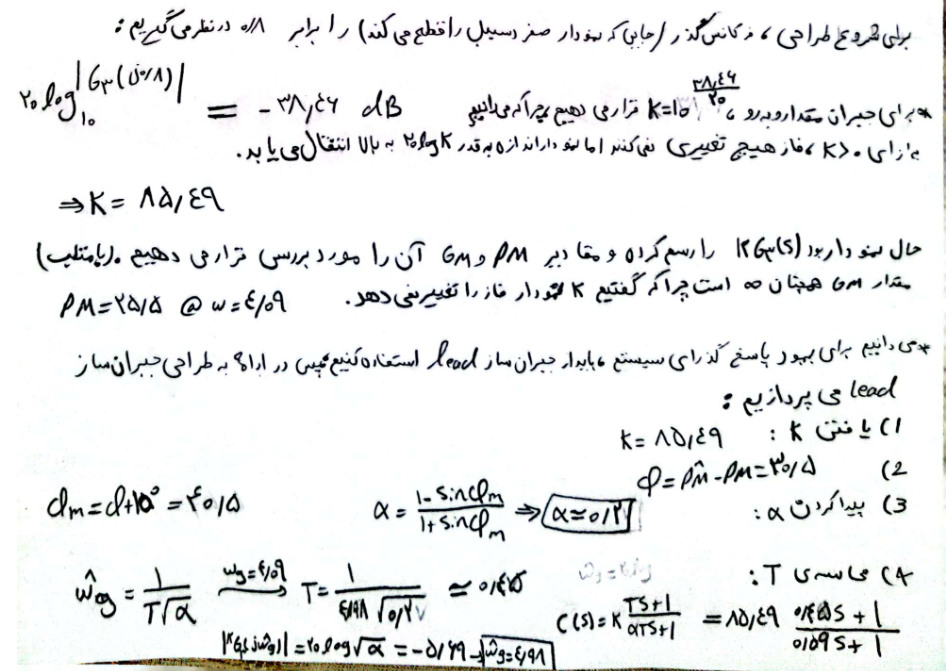 برای شروع طراحی، فرکانس گذر (جایی که نمودار صفر دسیبل را قطع می کند) را برابر در نظر می گیریم:
۲۰ log₁₀ |G۳(j۰٫۸)| = -۳۸٫۶۴ dB
* برای جبران مقدار روبرو، K=۱۰ قرار می دهیم چرا که می دانیم
به ازای K>۰، فاز هیچ تغییری نمی کند اما نمودار اندازه به قدر ۲۰logK به بالا انتقال می یابد.
⇒ K = ۸۵٫۴۹
حال نمودار بود KG۳(s) را رسم کرده و مقادیر PM و GM آن را مورد بررسی قرار می دهیم. (با متلب)
مقدار GM همچنان ∞ است چرا که گفتیم K نمودار فاز را تغییر نمی دهد. PM=۲۵٫۵ @ ω=۴٫۰۹
* می دانیم برای بهبود پاسخ گذرای سیستم، باید از جبران ساز lead استفاده کنیم پس در ادامه به طراحی جبران ساز
lead می پردازیم:
1) یافتن K: K=۸۵٫۴۹
2) φ=P̂M-PM=۳۰٫۵
3) پیدا کردن α: α = (1-sinφm)/(1+sinφm) ⇒ α≈۰٫۲ φm=φ+۱۰°=۴۰٫۵
4) محاسبه ی T: ω̂g = 1/(T√α) ωg=۴٫۰۹ → T = 1/(۶٫۹۸√۰٫۲) ≈ ۰٫۴۵
C(s)=K (TS+1)/(αTS+1) = ۸۵٫۴۹ (۰٫۴۵S+1)/(۰٫۰۵۹S+1)
|KG(jω̂g)| = ۲۰log√α = -۵٫۶۹ → ω̂g=۶٫۹۸